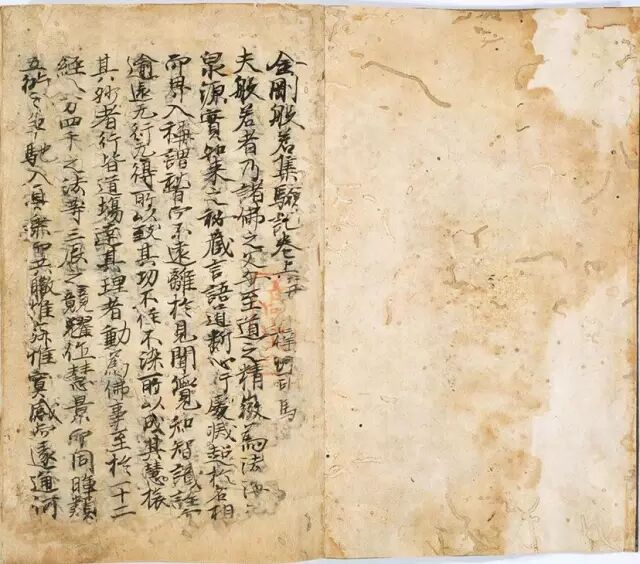 金剛般若集驗記卷上并 司馬
夫般若者乃諸佛之父至道之精微為法海
泉源實如來之秘藏言語道斷心行處滅超於名相
而 入稱謂暫 不遠離於見聞覺知智識詮
逾遠无行无得所以致其功不住不染所以成其慧據
其 者行皆道場達其理者動為佛事至於十二
經八万四千之法等三 之競耀 慧景而同暉類
五 之 馳入真乘而共轍惟寂惟冥感而遂通河